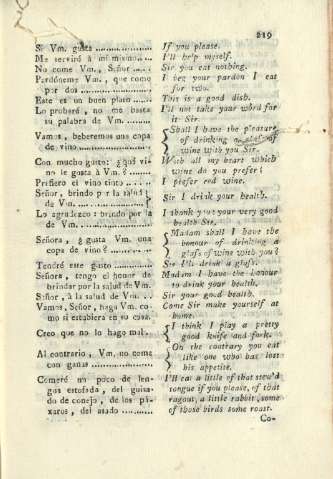 219
Si Vm. gusta ....................
Me serviré à mi mismo....
No come Vm., Señor ....
Perdóneme Vm., que como
por dos ....................
Este es un buen plato ......
Lo probaré, no me basta
su palabra de Vm. ........
Vamos, beberemos una copa
de vino ....................
Con mucho gusto: ¿qué vi-
no le gusta à Vm.? ......
Prefiero el vino tinto ......
Señor, brindo por la salud
de Vm. ....................
Lo agradezco: brindo por la
de Vm. ....................
Señora, ¿gusta Vm. una
copa de vino? ............
Tendré este gusto ............
Señora, tengo el honor de
brindar por la salud de Vm.
Señor, à la salud de Vm. ..
Vamos, Señor, haga Vm. co-
mo si estubiera en su casa.
Creo que no lo hago mal.
Al contrario, Vm. no come
con ganas ..................
Comeré un poco de len-
gua estofada, del guisa-
do de conejo, de los pá-
xaros, del asado ............
If you please.
I'll help myself.
Sir you eat nothing.
I beg your pardon I eat
for two.
This is a good dish.
I'll not take your word for
it Sir.
Shall I have the pleasure
of drinking a glass of
wine with you Sir.
With all my heart which
wine do you prefer?
I prefer red wine.
Sir I drink your health.
I thank you your very good
health Sir.
Madam shall I have the
honour of drinking a
glass of wine with you?
Sir I'll drink a glass.
Madam I have the honour
to drink your health.
Sir your good health.
Come Sir make yourself at
home.
I think I play a pretty
good knife and fork.
On the contrary you eat
like one who has lost
his appetite.
I'll eat a little of that stew'd
tongue if you please, of that
ragout, a little rabbit, some
of those birds some roast.
Co-